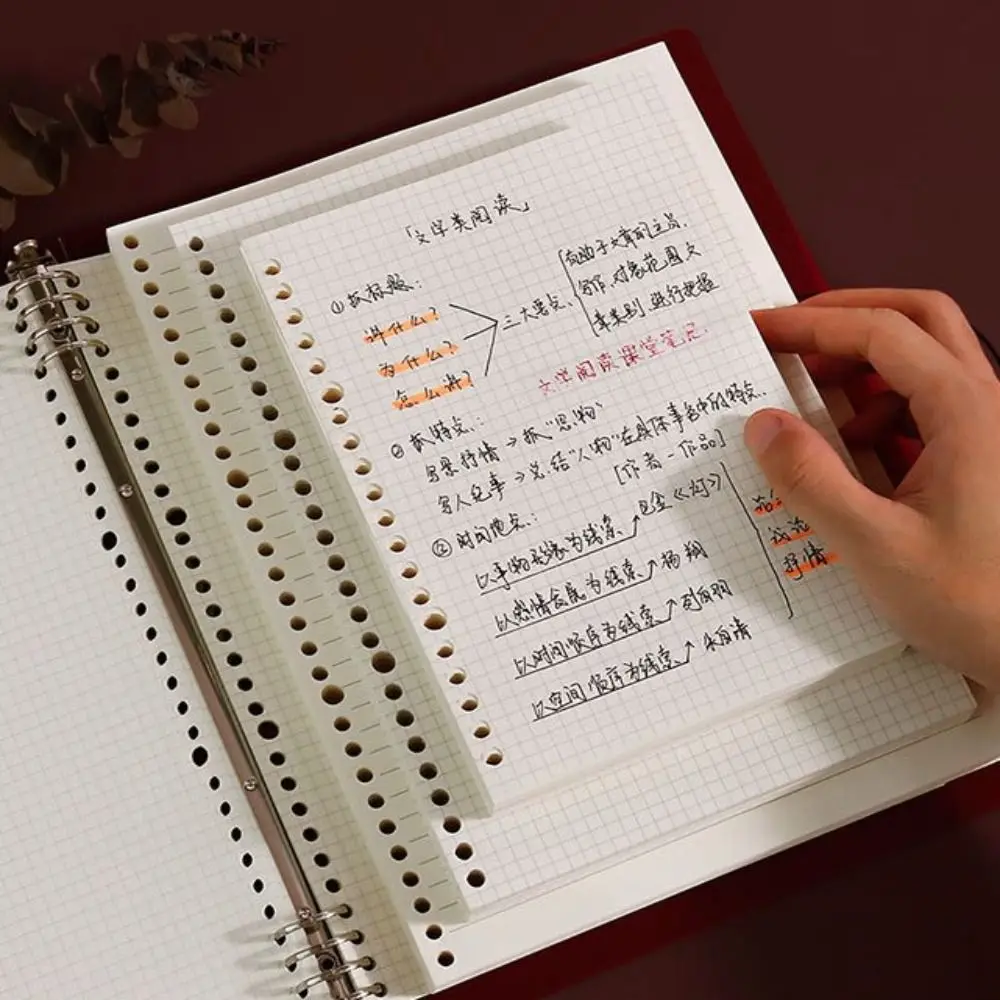 「文学类阅读」
① 抓标题：
讲什么？
为什么？
怎么讲？
三大要点
有助于文章的主旨.
写作.对象范围文
章类别.进行把握
文学阅读课堂笔记.
② 抓特点：
写景抒情→抓"景物"
写人纪事→总结"人物"在具体事名中的特点.
[作者-作品]
③ 时间地点：
以事物形象为线索↗巴金《灯》
以感情发展为线索↗杨朔
以时间顺序为线索↗刘白羽
以空间顺序为线索↗朱自清
议论
抒情